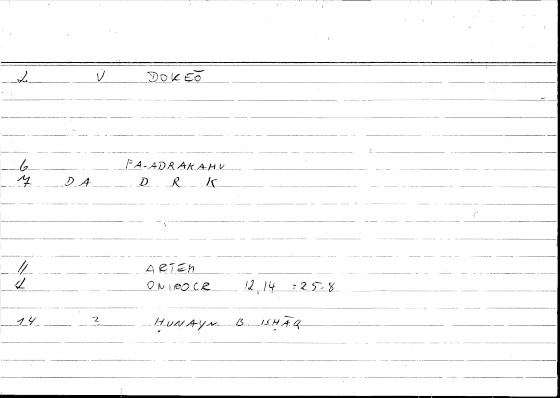 2 V DOKEŌ
6 FA-ADRAKAHU
7 DA D R K
11 ARTEM
2 ONIROCR 12,14 :25.8
14 2 ḤUNAYN B ISḤĀQ